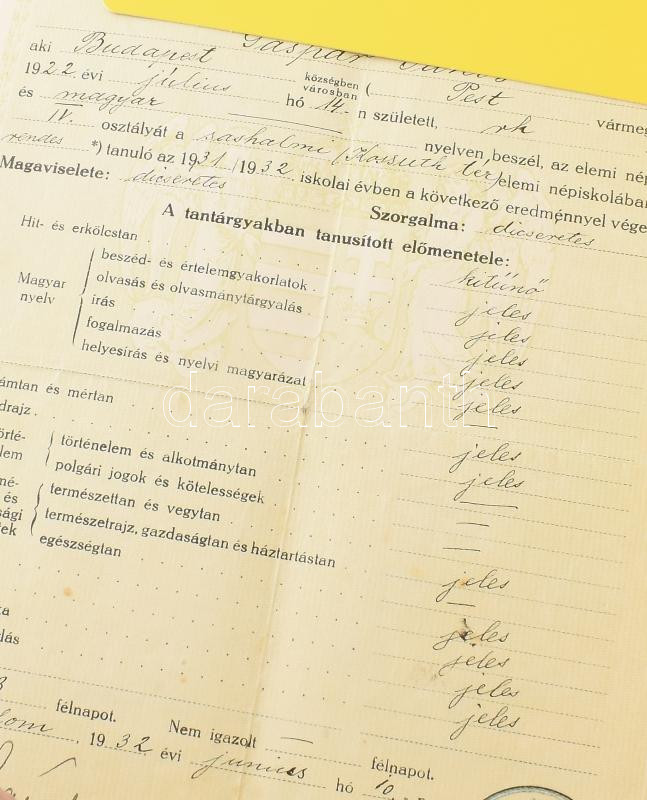 Gáspár János
aki Budapest községben városban ( Pest vármeg
1922. évi július hó 14-n született, rk
és magyar nyelven beszél, az elemi né
IV. osztályát a sashalmi (Kossuth tér) elemi népiskolában
rendes *) tanuló az 1931/1932. iskolai évben a következő eredménnyel vége
Magaviselete: dicséretes Szorgalma: dicséretes
A tantárgyakban tanusított előmenetele:
Hit- és erkölcstan kitünő
Magyar nyelv
beszéd- és értelemgyakorlatok jeles
olvasás és olvasmánytárgyalás jeles
irás jeles
fogalmazás jeles
helyesírás és nyelvi magyarázat jeles
ámtan és mértan
drajz jeles
örté-
lem
történelem és alkotmánytan jeles
polgári jogok és kötelességek —
mé-
és
sági
tek
természettan és vegytan —
természetrajz, gazdaságtan és háztartástan —
egészségtan jeles
—
jeles
jeles
jeles
jeles
félnapot. Nem igazolt — félnapot.
1932 évi junius hó 10
darabanth